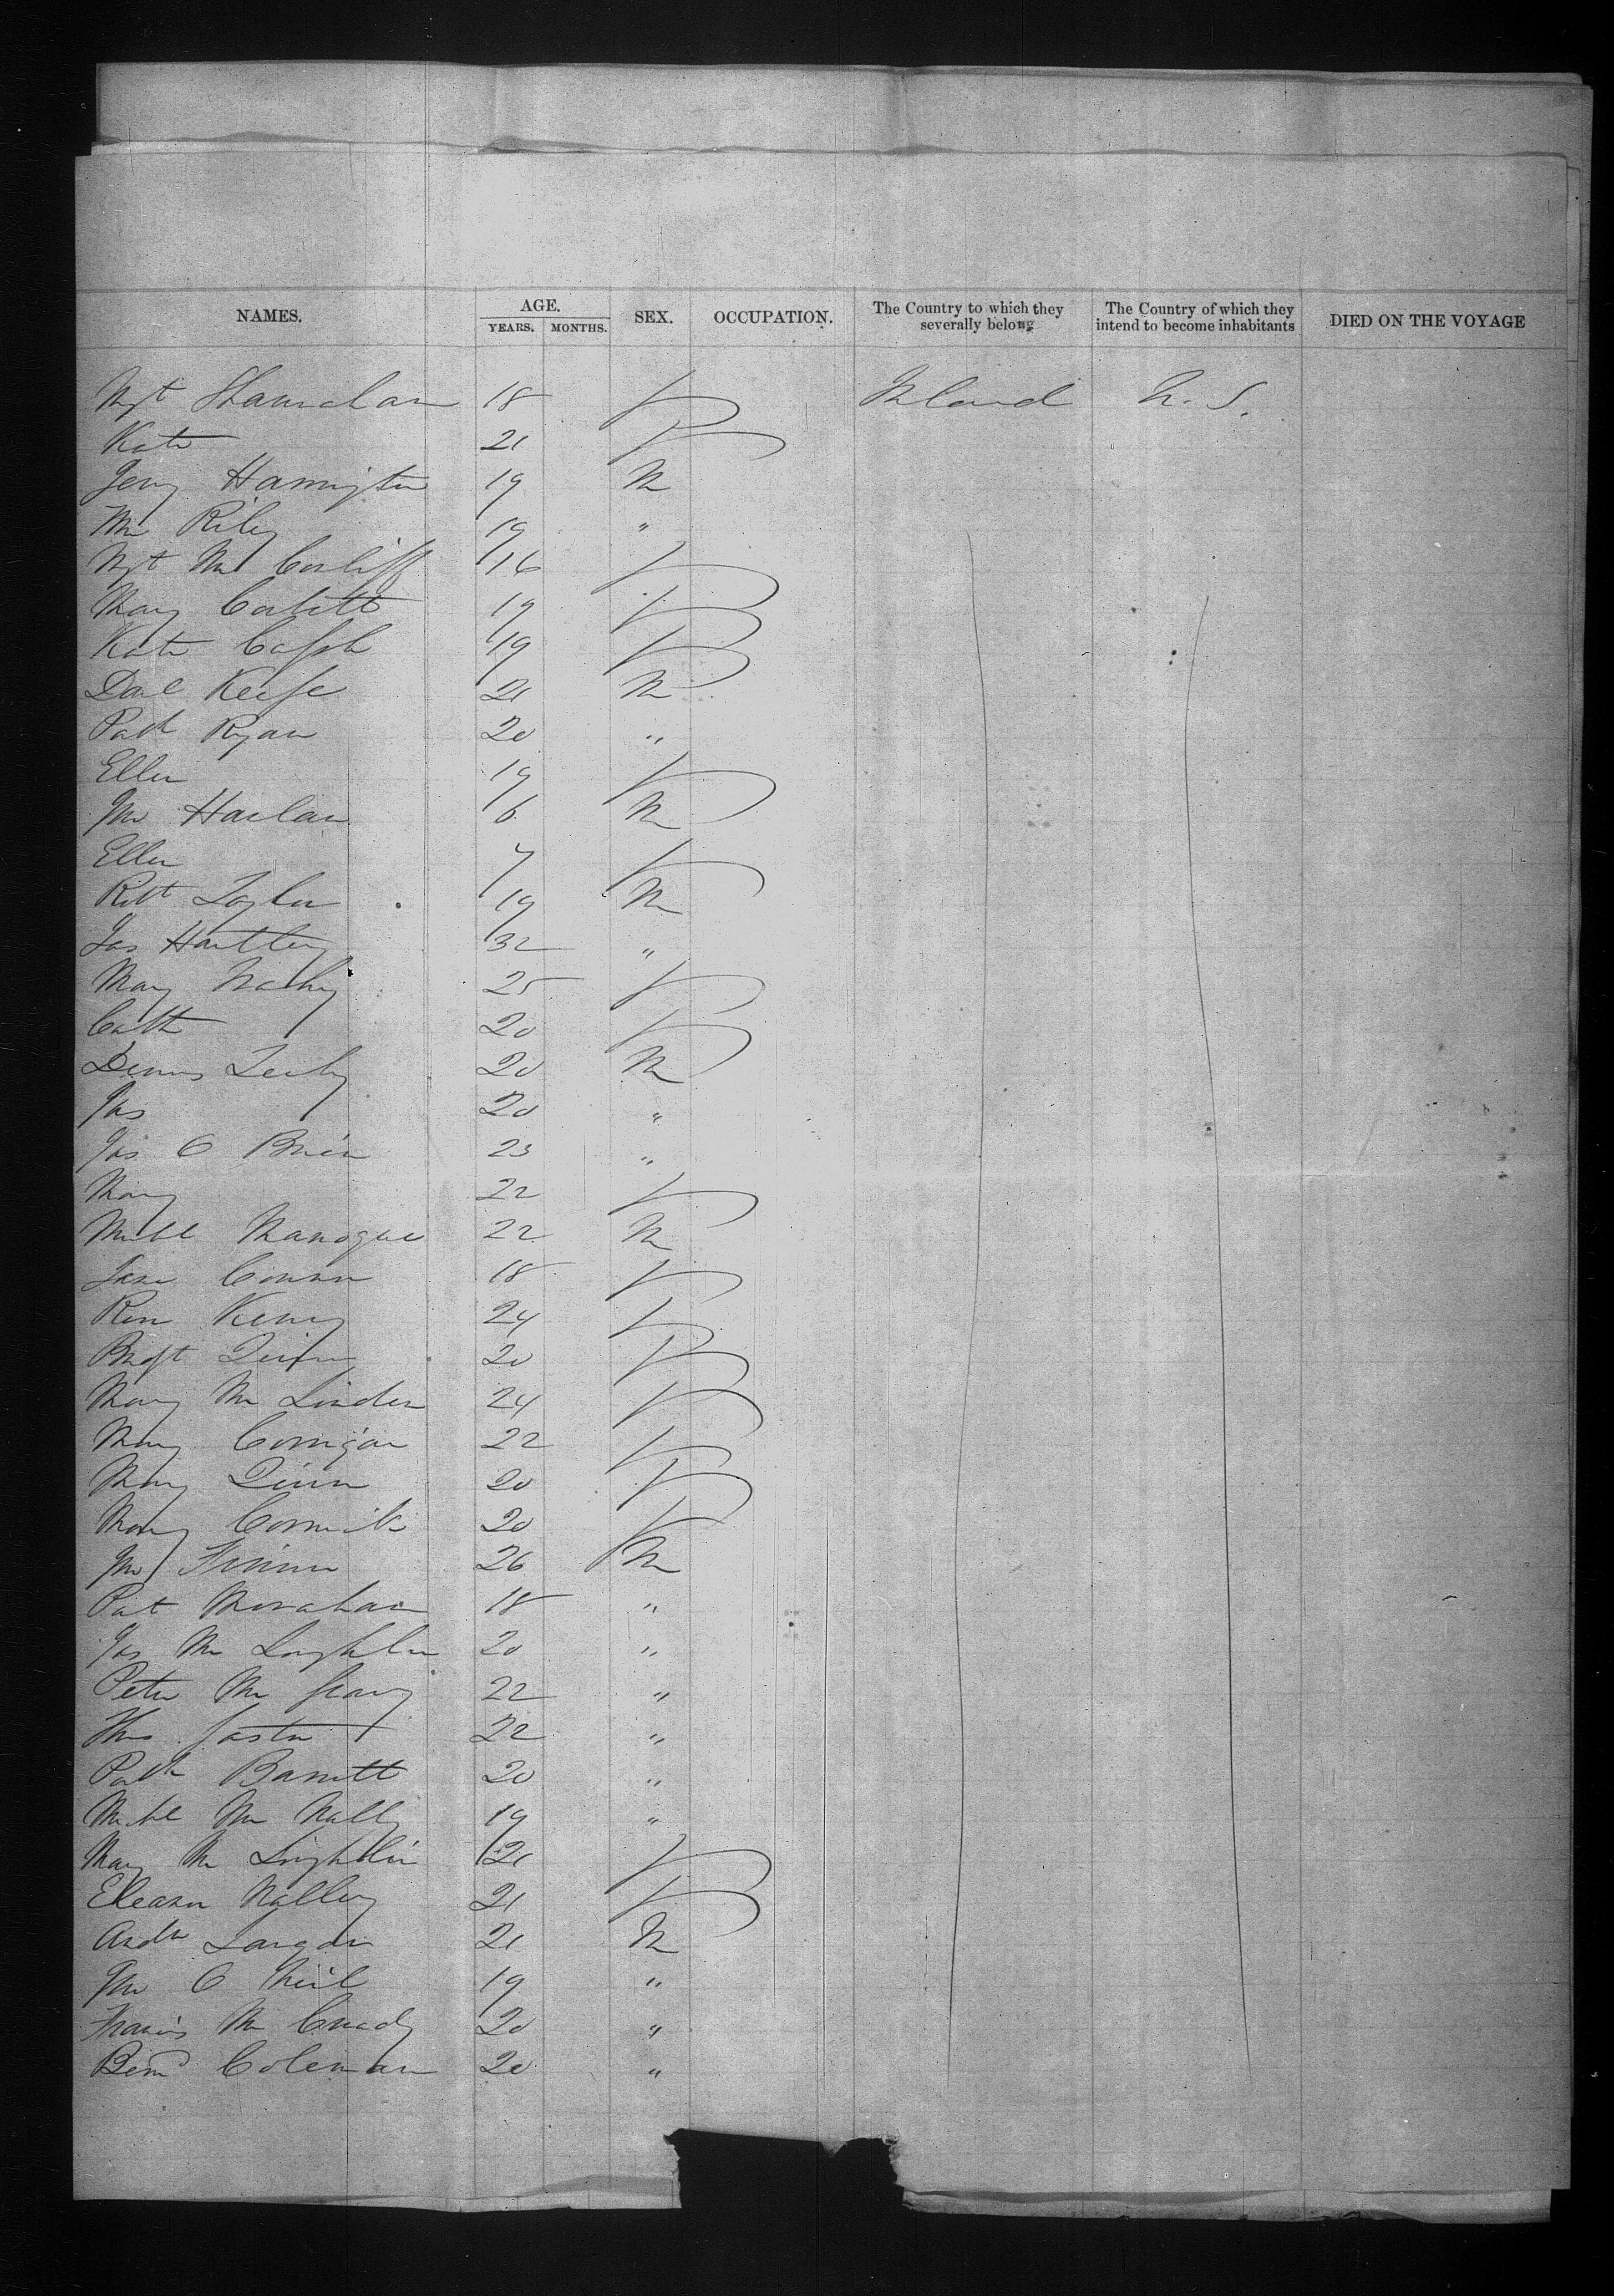 NAMES. AGE. YEARS. MONTHS. SEX. OCCUPATION. The Country to which they severally belong The Country of which they intend to become inhabitants DIED ON THE VOYAGE
Mgt 18 F Ireland U. S.
Kate 21 F
Jerry Harrington 19 M
Wm Riley 19 "
Mgt Mc 16 F
Mary Corbett 19 F
Kate 19 F
Danl Keefe 21 M
Patk Ryan 20 "
Ellen 19 F
Jno Harlan 6 M
Ellen 7 F
Robt Taylor 19 M
Jas Hartley 32 "
Mary 25 F
Cath 20 F
Dennis 20 M
Jas 20 "
Jas O Brien 23 "
Mary 22 F
Michl Manogue 22 M
Jane 18 F
Rose Kenny 24 F
Bridgt Quinn 20 F
Mary Mc Linden 24 F
Mary Corrigan 22 F
Mary Quinn 20 F
Mary Cormick 20 F
Jno 26 M
Pat Monahan 18 "
Jas Mc Loughlin 20 "
Peter Mc 22 "
Thos 22 "
Patk Barrett 20 "
Michl Mc Nally 19 "
Mary Mc Loughlin 21 F
Eleanor Nalley 21 F
Andw Langan 21 M
Jno O Neil 19 "
Francis Mc 20 "
Bernd Coleman 20 "